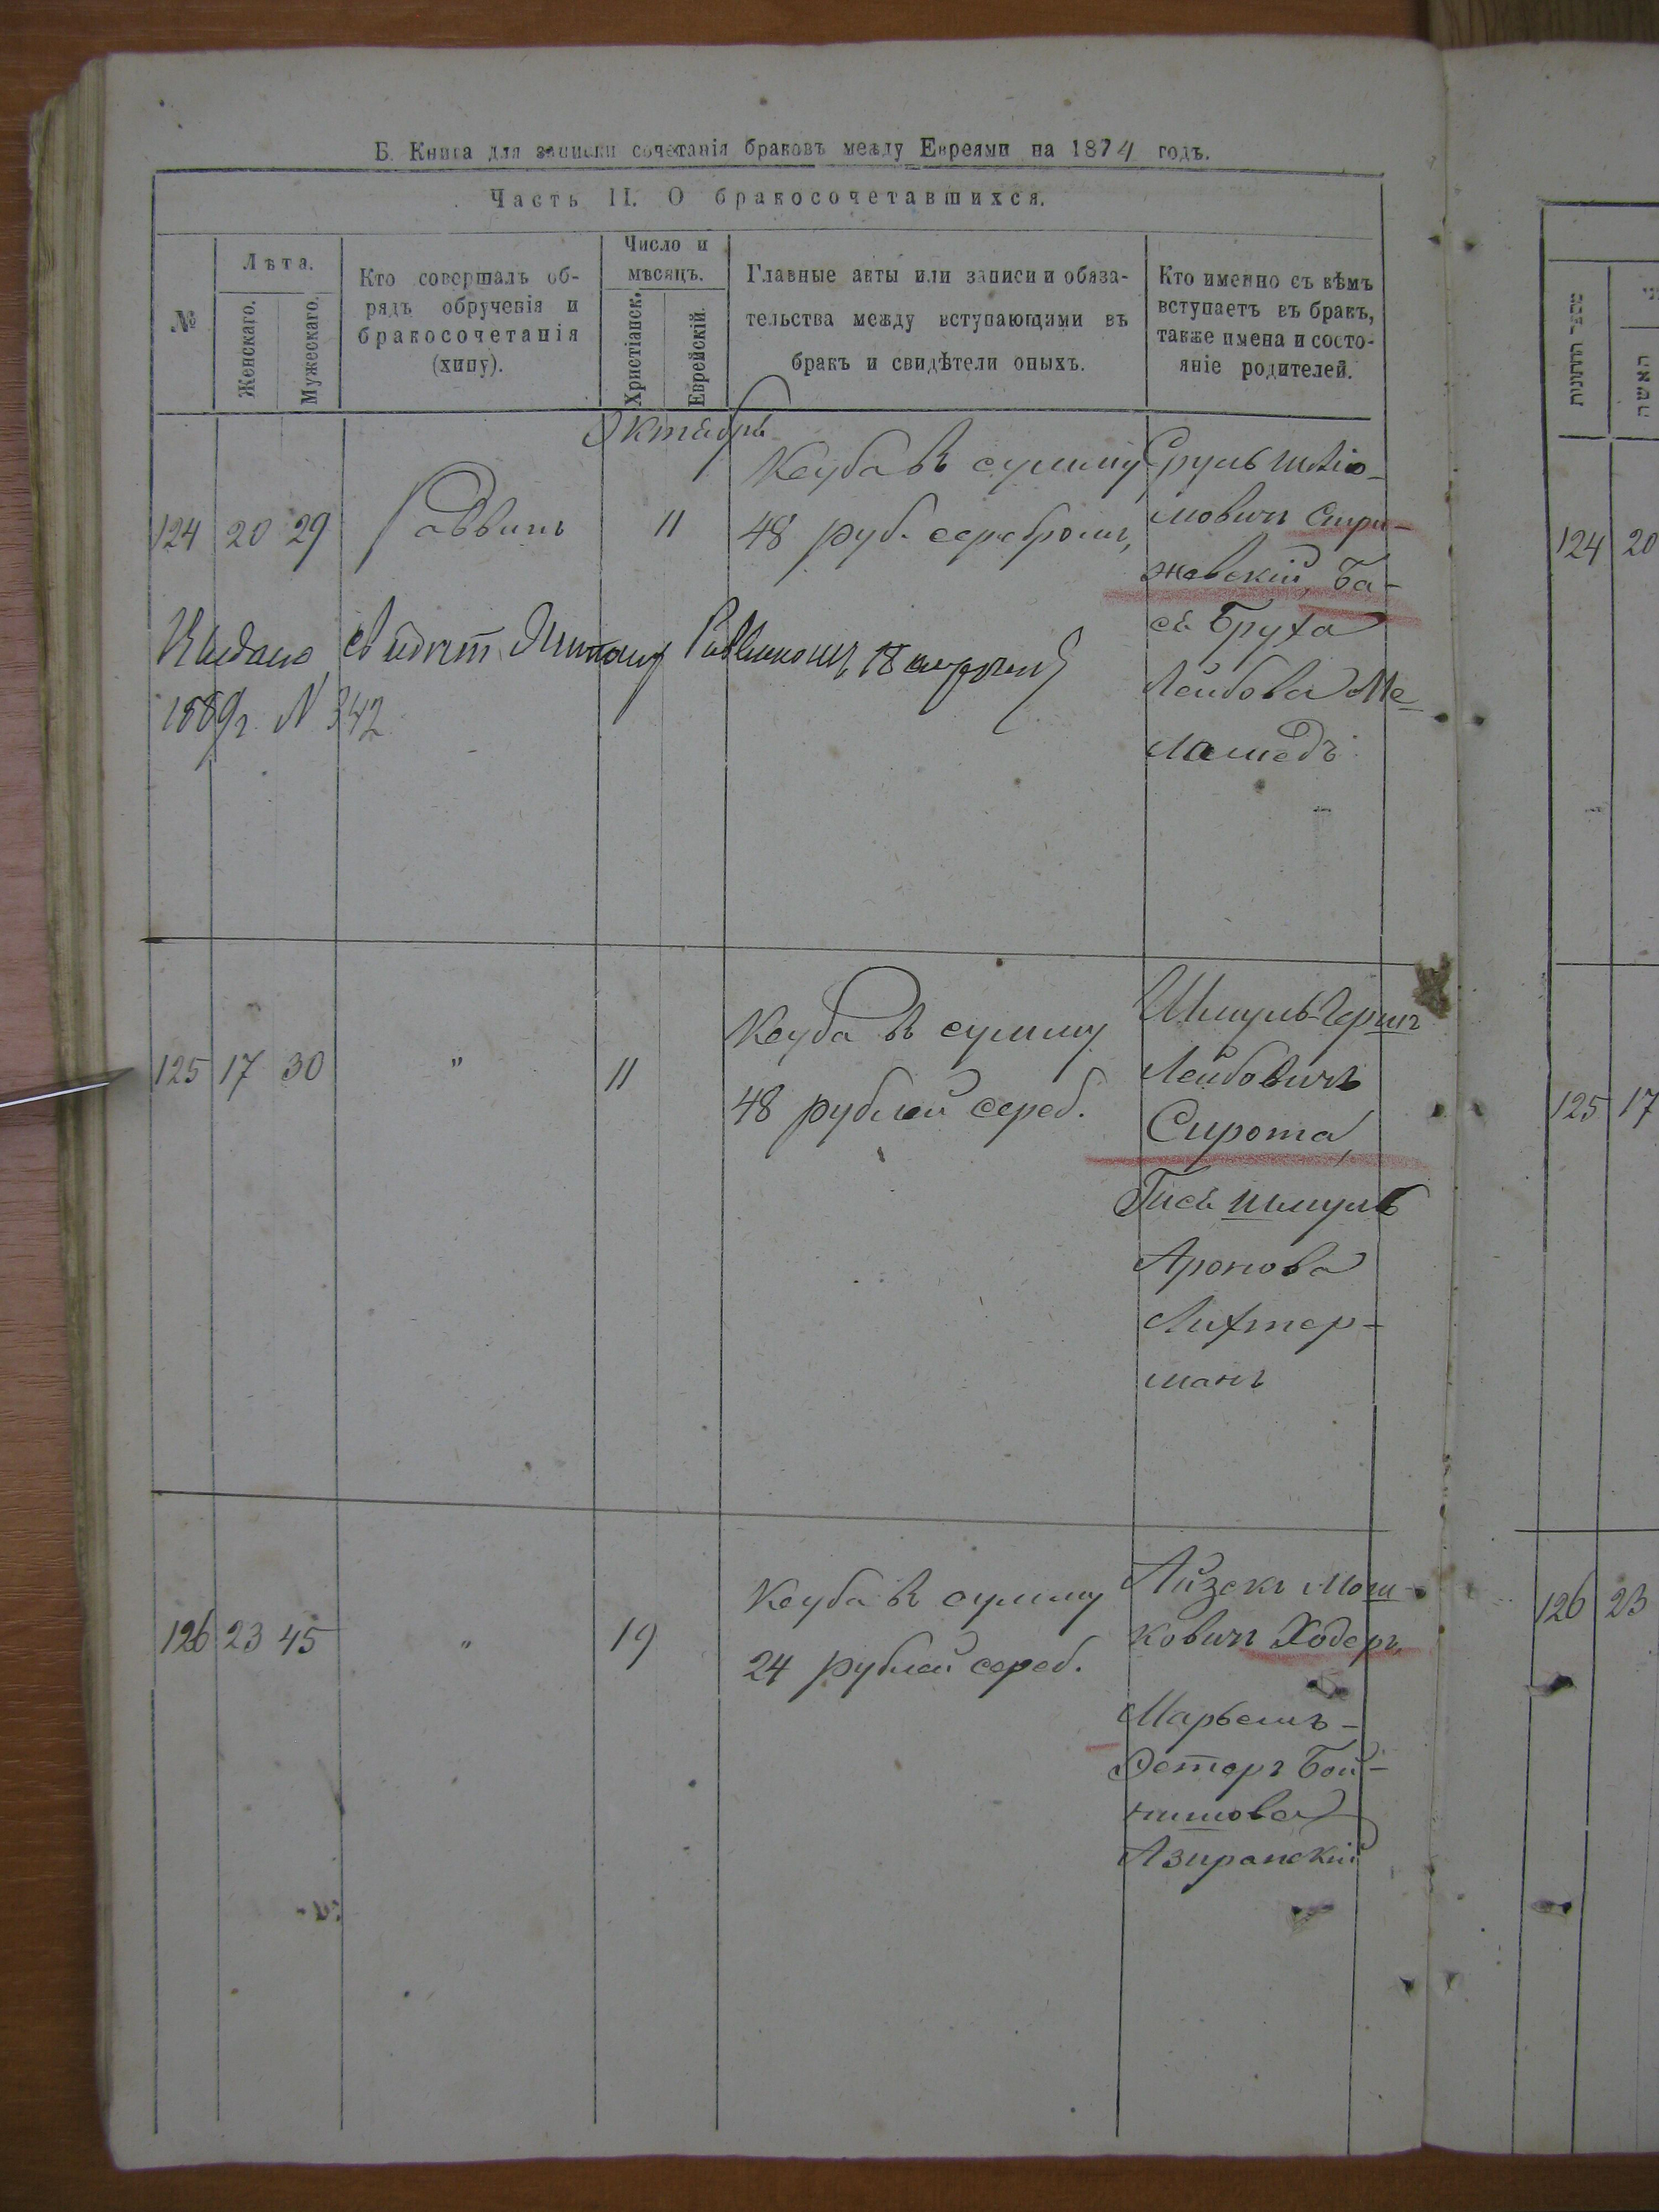 Б. Книга для записки сочетанія браковъ между Евреями на 1874 годъ.
Часть II. О бракосочетавшихся.
№
Лѣта.
Женскаго.
Мужескаго.
Кто совершалъ об-
рядъ обрученія и
бракосочетанія
(хипу).
Число и
мѣсяцъ.
Христіанск.
Еврейскій.
Главные акты или записи и обяза-
тельства между вступающими въ
бракъ и свидѣтели оныхъ.
Кто именно съ кѣмъ
вступаетъ въ бракъ,
также имена и состо-
яніе родителей.
Октябрь
124 20 29 Раввинъ 11
Кеуба въ сумму
48 руб. серебромъ,
Сруль Шлио-
мовичъ Стри-
жевскій, Ба-
ся Бруха
Лейбова Ме-
ламедъ
Выдано свидѣт. Раввиномъ 18
1889г. N 342
125 17 30 " 11
Кеуба въ сумму
48 рублей сереб.
Шмуль-Гершъ
Лейбовичъ
Сирота,
Гися Шмуль
Аронова
Лихтер-
манъ
126 23 45 " 19
Кеуба въ сумму
24 рублей сереб.
Айзекъ Мош-
ковичъ Ходеръ,
Марьемъ-
Эстеръ Бой-
нишова
Азиранскій
מספר החתונות
האשה
124 20
125 17
126 23